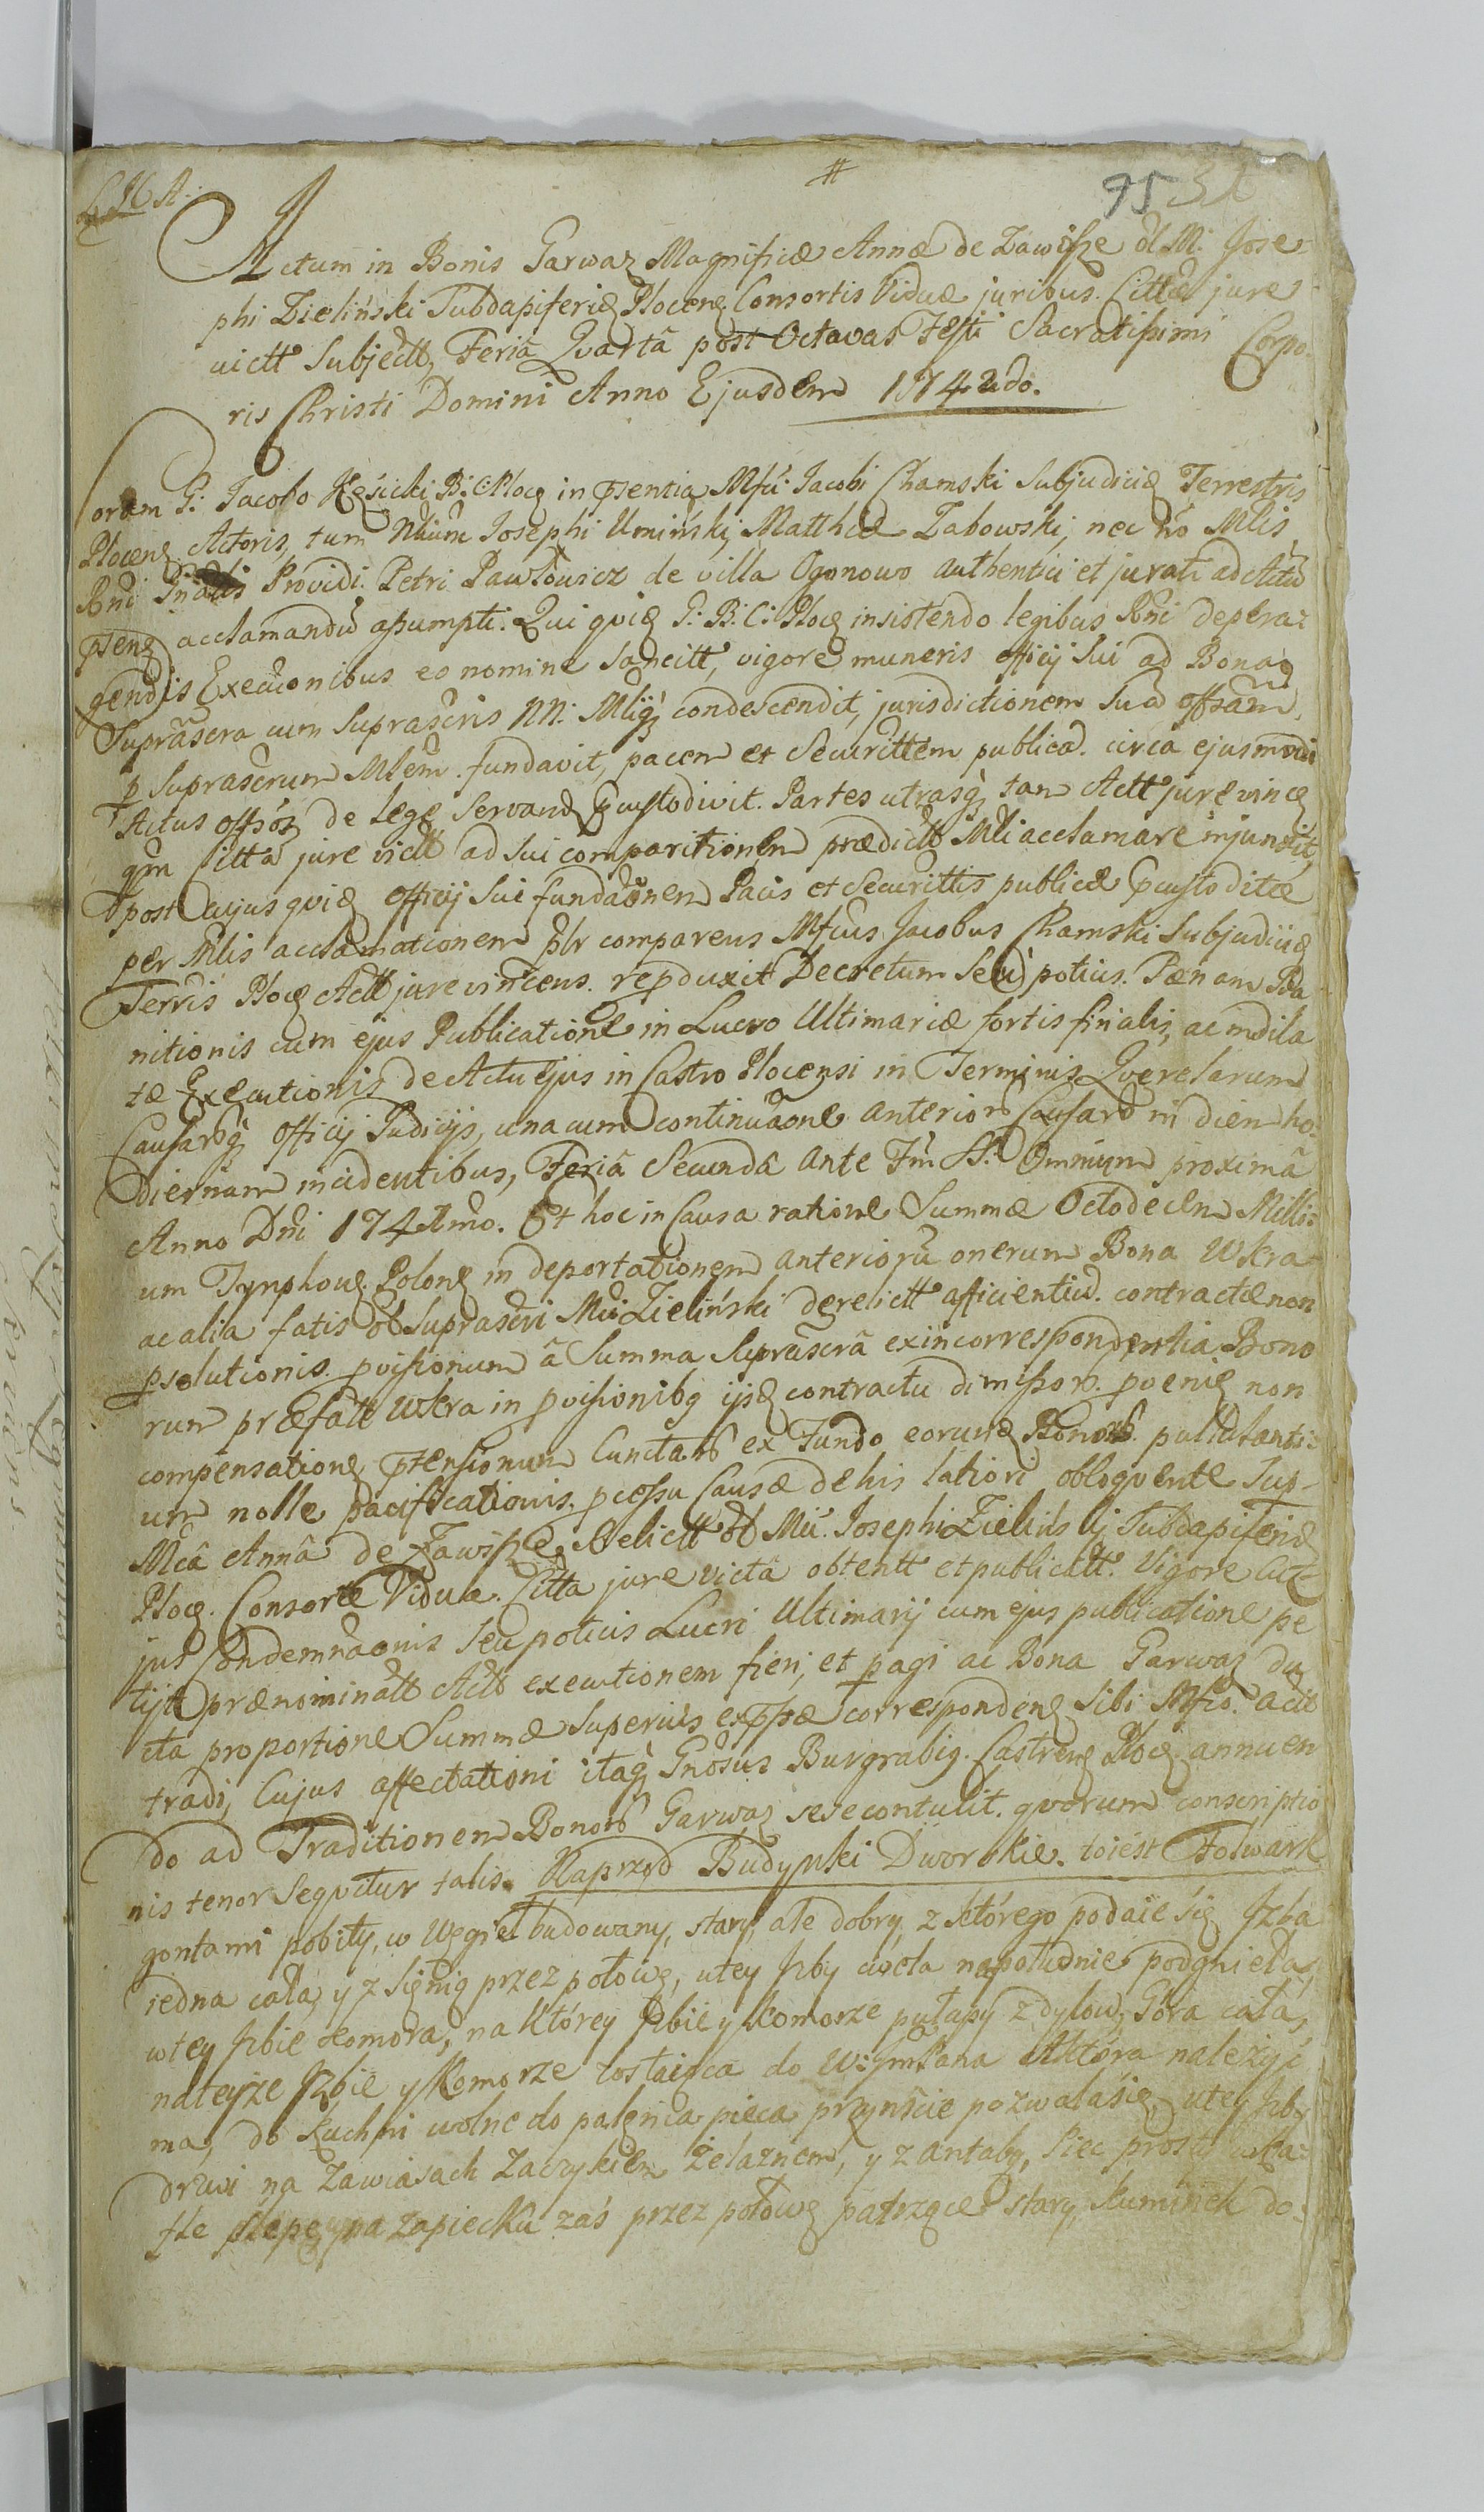 #
95
Actum in Bonis Garwaz Magnificæ Annæ de Zawisze ol. M. Jose-
phi Zieliński Subdapiferię Plocenę Consortis Viduæ juribus Cittæ jure
victt Subjectt, Feriâ Qvartâ post Octavas Festi Sacratissimi Corpo-
ris Christi Domini Anno Ejusdem 1742do.
Coram G: Jacobo Kęsicki B: C: Ploce in psentia Mfci Jacobi Chamski Subjudicię Terrestris
Plocenę Actoris, tum Nbium Josephi Umiński, Matthæ Zabowski, nec no Mlis
Rni Providi Petri Pawłowicz de villa Ogonowo authentici et jurati ad Actu
psenę acclamandu assumpti. Qui quię G: B: C: Ploce insistendo legibus Rni de pera-
gendis Executionibus eo nomine sancitt, vigore muneris officij Sui ad Bona
Suprascra cum Suprascris NN: Mliq condescendit, jurisdictionem Sua offsam
p Suprascrum Mlem fundavit, pacem et Securittem publica circa ejusmodi
Actus offsos de lege Servand Custodivit. Partes utrasq tam Actt jure vince
qm Citta jure victt ad Sui comparitionem prædictt Mli acclamare injunxit,
post cujus quię officij Sui fundationem Pacis et Securittis publicæ Custoditæ
per Mlis acclamationem plr comparens Mfcus Jacobus Chamski Subjudicię
Terris Ploce Actt jure vincens. repduxit Decretum Seu potius Pænam
nitionis cum ejus Publicatione in Lucro Ultimariæ fortis finalis, ac indila
tæ Executionis de Actu ejus in Castro Plocensi in Terminis Qverelarum
Causarq officij Judicijs, una cum continuaone anterior Causar in diem ho-
diernam incidentibus, Feriâ Secundâ ante Fm SS. Omnium proximâ
Anno Dni 1741mo. Et hoc in Causa ratione Summæ Octodecem Milli-
um Tynphonę Polonę in deportationem anterioru onerum Bona Wkra
ac alia fatis ol Suprascri Mci Zieliński derelictt afficientiu contractæ non
psolutionis. pvisionum â Summa Suprascrâ ex incorrespondentia Bono
rum præfatt Wkra in pvisionibq ijsę contractu dimissor. pvenię non
compensationę ptensionum Cunctar ex Fundo eorunę Bonor pullulanti-
um nolle pacificationis. pcessu Causæ de his latiori obloqvente Sup-
Mcâ Annâ de Zawisze, Relictt ol Mci Josephi Zielińskij Subdapiferię
Ploce. Consorte Viduæ. Citta jure victâ obtentt et publicatt. Vigore Cu-
jus Condemnaonis seu potius Lucri Ultimarij cum ejus publicatione pe
tijt prænominatt Actt executionem fieri, et pagi ac Bona Garwaz du
cta proportione Summæ Superius expssæ correspondenę Sibi Mfco. Actt
tradi, Cujus affectationi itaq Gnosus Burgrabiq. Castrenę Ploce annuen
do ad Traditionem Bonor Garwaz sese contulit. qvorum conscriptio
nis tenor Seqvitur talis. Naprzod Budynki Dworskie. toiest Folwark
gontami pobity, w Węgieł budowany, stary, ale dobry, z którego podaie się Izba
iedna cała, y z Sięnią przez połowę, u tey Izby ściela na południe podgnieła,
w tey Izbie komora, na którey Izbie y komorze pułapy z dylow, Góra cała,
na teyże Izbie y Komorze zostaiąca do W: Jm Pana Aktora należyć
ma, do kuchni wolne do palęnia pieca przynście pozwalasię, u tey Izby
drzwi na zawiasach Zaczykiem żelaznem, y z antaby, Piec prosty
fle ślepę, na zapiecku zaś przez połowę patrzące stary, kuminek do-